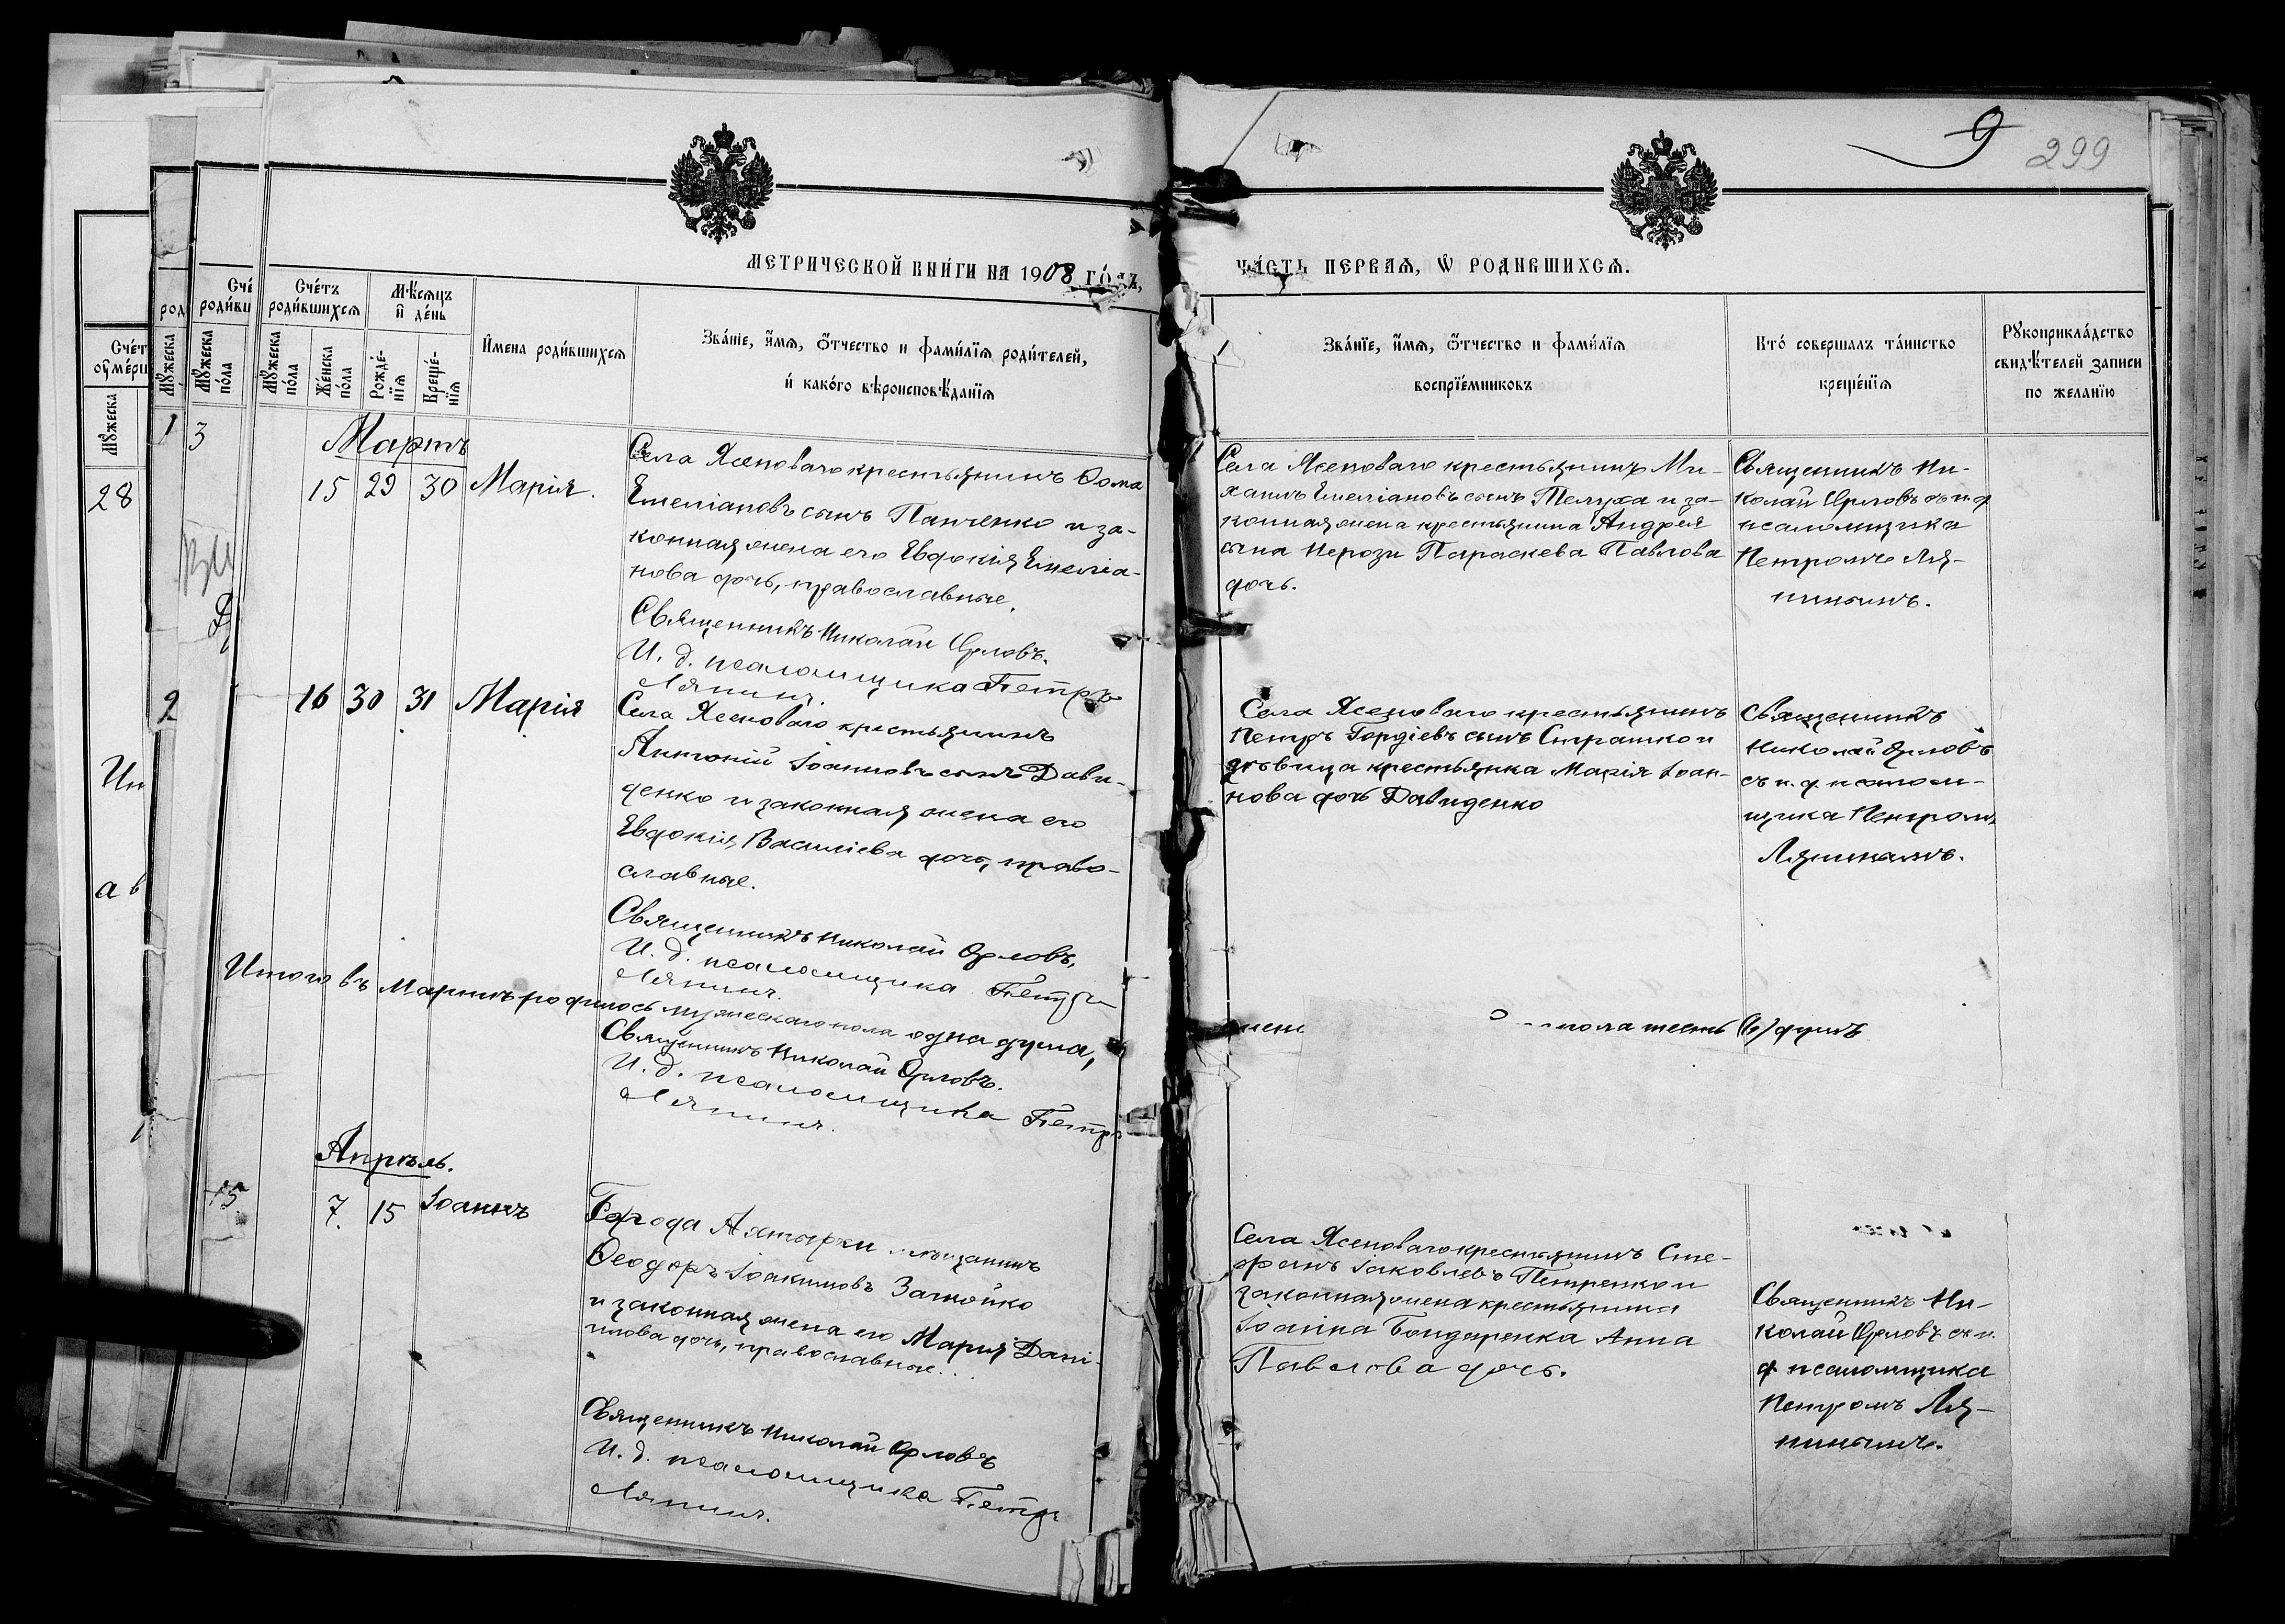 9
299
МЕТРИЧЕСКОЙ КНИГИ НА 1908 ГОДЪ,
ЧАСТЬ ПЕРВАЯ, Ѡ РОДИВШИХСЯ.
Счетъ родившихся
Мужеска пола
Женска пола
Мѣсяцъ и день
Рожденія
Крещенія
Имена родившихся
Званіе, имя, отчество и фамилія родителей,
и какого вѣроисповѣданія
Званіе, имя, отчество и фамилія
воспріемниковъ
Кто совершалъ таинство
крещенія
Рукоприкладство
свидѣтелей записи
по желанію
28
1
3
Мартъ
15 29 30 Марія.
Села Ясеноваго крестьянинъ Ѳома
Емеліановъ сынъ Панченко и за-
конная жена его Евдокія Емеліа-
нова дочь, православные.
Священникъ Николай Орловъ.
И. д. псаломщика Петръ
Ляпинъ.
Села Ясеноваго крестьянинъ Ми-
хаилъ Емеліановъ сынъ Телуха и за-
конная жена крестьянина Андрея
сына Нерози Параскева Павлова
дочь.
Священникъ Ни-
колай Орловъ съ и. д
псаломщика
Петромъ Ля-
пинымъ.
2
16 30 31 Марія
Села Ясеноваго крестьянинъ
Антоній Іоанновъ сынъ Дави-
денко и законная жена его
Евдокія Василіева дочь, право-
славные.
Священникъ Николай Орловъ,
И. д. псаломщика Петръ
Ляпинъ.
Села Ясеноваго крестьянинъ
Петръ Гордіевъ сынъ Сырашко и
дѣвица крестьянка Марія Іоан-
нова дочь Давиденко
Священникъ
Николай Орловъ
съ и. д. псалом-
щика Петромъ
Ляпинымъ.
Итого въ Мартѣ родилось мужескаго пола одна душа,
жен пола шесть (6) душъ
Священникъ Николай Орловъ.
И. д. псаломщика Петръ
Ляпинъ.
Апрѣль.
15 7. 15 Іоаннъ
Города Ахтырки мѣщанинъ
Ѳеодоръ Іоакимовъ
и законная жена его Марія Дані-
илова дочь, православные.
Священникъ Николай Орловъ
И. д. псаломщика Петръ
Ляпинъ.
Села Ясеноваго крестьянинъ Сте-
фанъ Іаковлевъ Петренко и
законная жена крестьянина
Іоанна Бондаренка Анна
Павлова дочь.
Священникъ Ни-
колай Орловъ съ и.
д псаломщика
Петромъ Ля-
пинымъ.